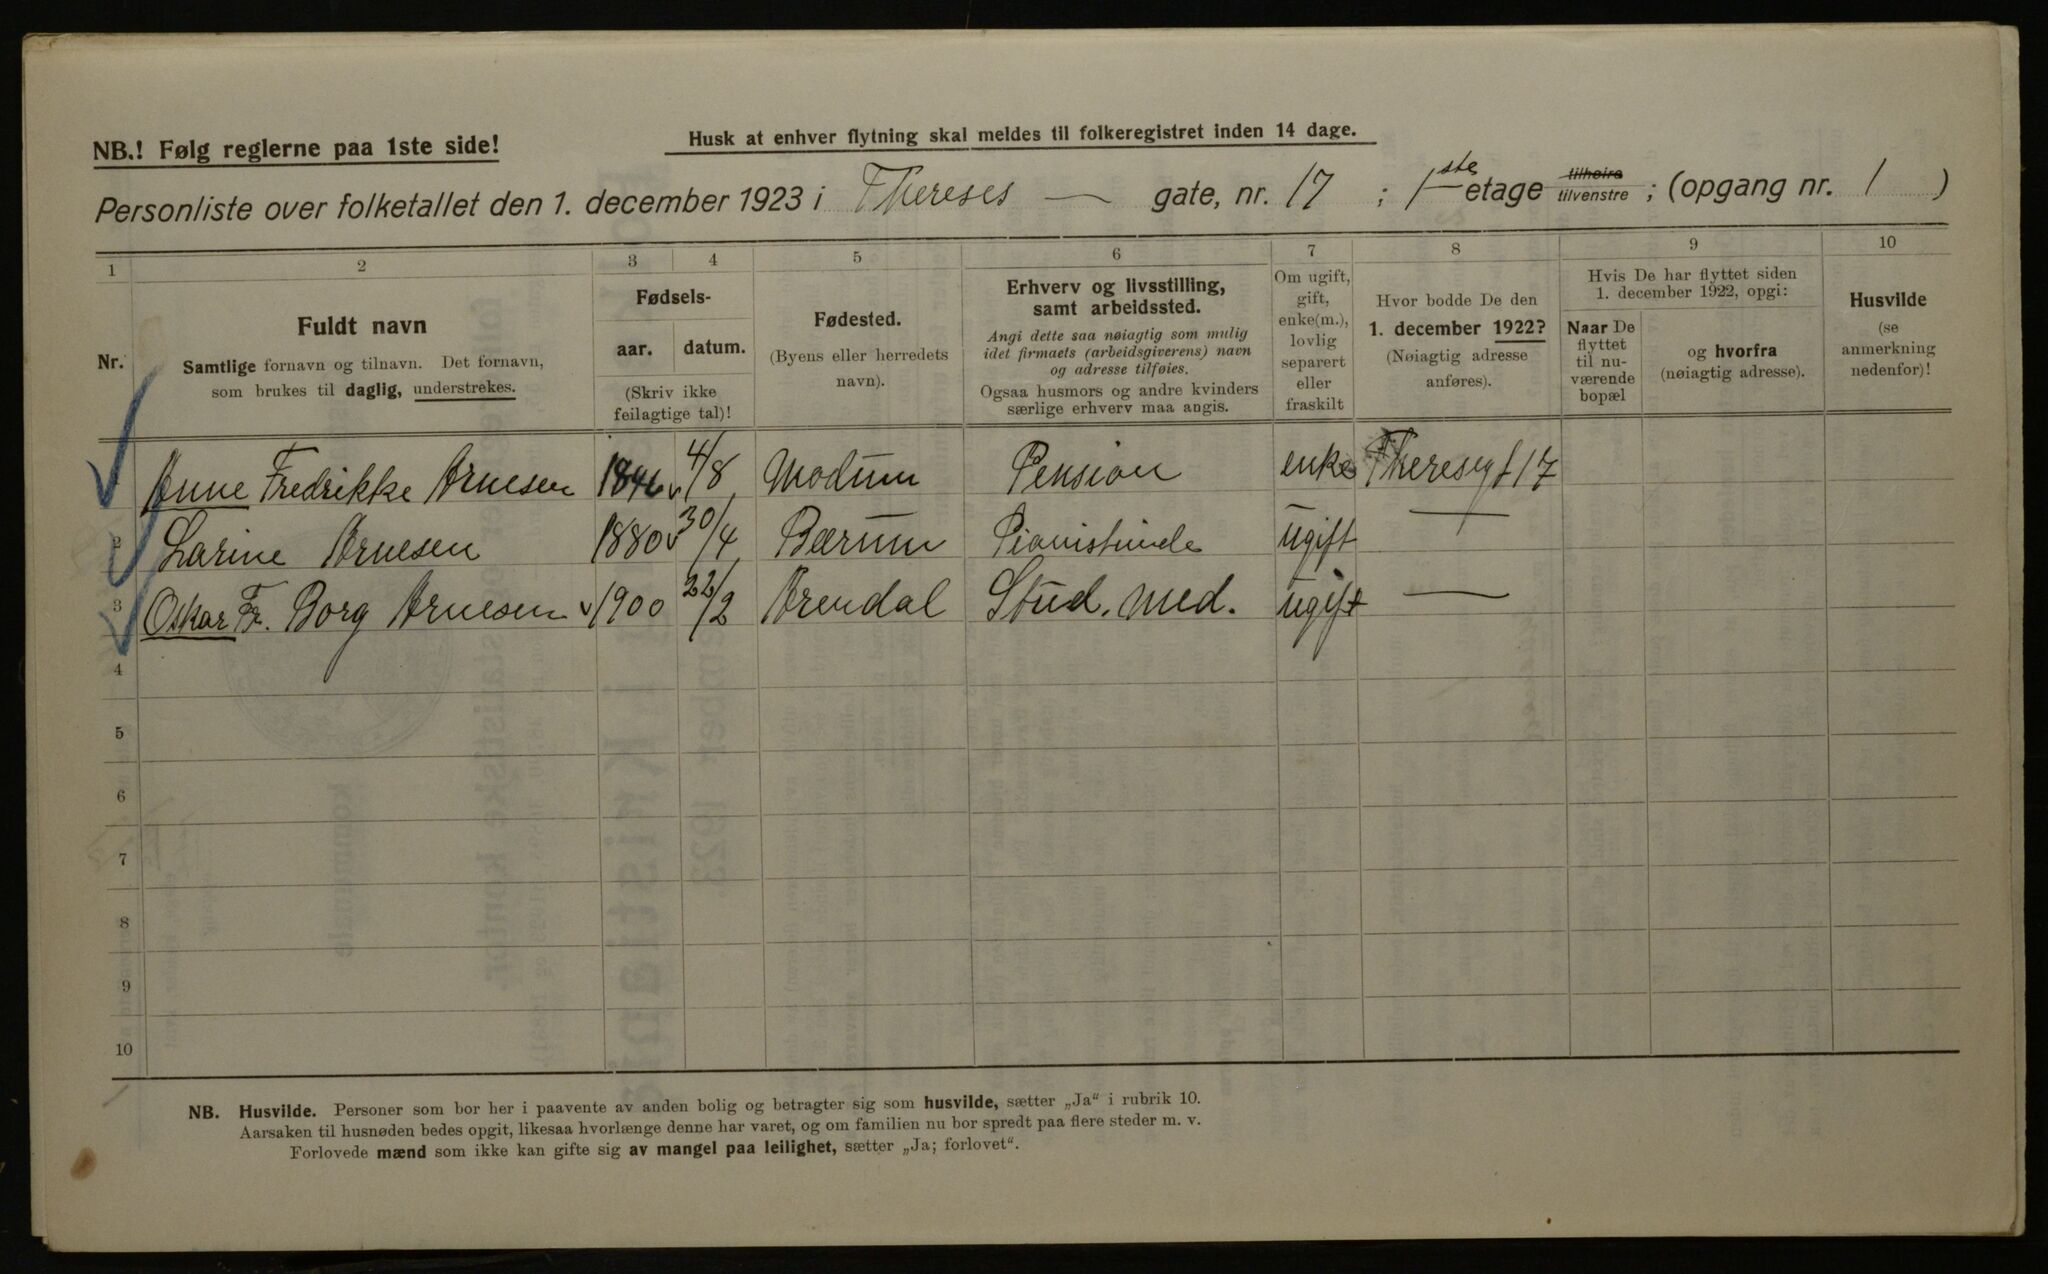 NB.! Følg reglerne paa 1ste side!
Husk at enhver flytning skal meldes til folkeregistret inden 14 dage.
Personliste over folketallet den 1. december 1923 i Thereses — gate, nr. 17 ; 1ste etage tilhøire tilvenstre ; (opgang nr. 1 )
1 2 3 4 5 6 7 8 9 10
Nr.
Fuldt navn
Samtlige fornavn og tilnavn. Det fornavn,
som brukes til daglig, understrekes.
Fødsels-
aar. datum.
(Skriv ikke
feilagtige tal)!
Fødested.
(Byens eller herredets
navn).
Erhverv og livsstilling,
samt arbeidssted.
Angi dette saa nøiagtig som mulig
idet firmaets (arbeidsgiverens) navn
og adresse tilføies.
Ogsaa husmors og andre kvinders
særlige erhverv maa angis.
Om ugift,
gift,
enke(m.),
lovlig
separert
eller
fraskilt
Hvor bodde De den
1. december 1922?
(Nøiagtig adresse
anføres).
Hvis De har flyttet siden
1. december 1922, opgi:
Naar De
flyttet
til nu-
værende
bopæl
og hvorfra
(nøiagtig adresse).
Husvilde
(se
anmerkning
nedenfor)!
Anne Fredrikke Arnesen 1846 4/8 Modum Pension enke Theresegt 17
2 Larine Arnesen 1880 30/4 Bærum Pianistinde ugift —
3 Oskar Fr. Borg Arnesen 1900 22/2 Arendal Stud. med. ugift —
4
5
6
7
8
9
10
NB. Husvilde. Personer som bor her i paavente av anden bolig og betragter sig som husvilde, sætter „Ja“ i rubrik 10.
Aarsaken til husnøden bedes opgit, likesaa hvorlænge denne har varet, og om familien nu bor spredt paa flere steder m. v.
Forlovede mænd som ikke kan gifte sig av mangel paa leilighet, sætter „Ja; forlovet“.